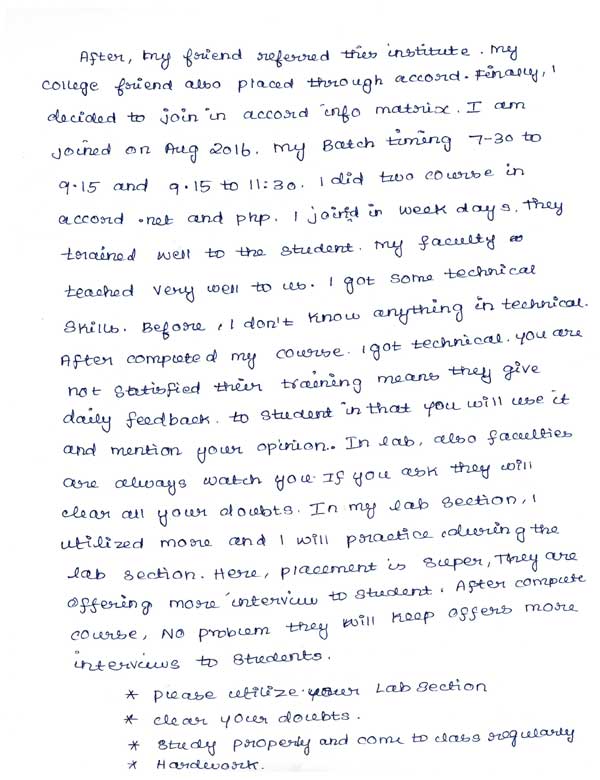 After, my friend referred this institute. My
college friend also placed through accord. Finally, I
decided to join in accord info matrix. I am
joined on Aug 2016. My Batch timing 7-30 to
9.15 and 9.15 to 11:30. I did two course in
accord .net and php. I joind in week days. They
trained well to the student. My faculty
teached very well to us. I got some technical
skills. Before, I don't know anything in technical.
After completed my course. I got technical. you are
not satisfied their training means they give
daily feedback. to student in that you will use it
and mention your opinion. In lab, also faculties
are always watch you. If you ask they will
clear all your doubts. In my lab section, I
utilized more and I will practice during the
lab section. Here, placement is super, They are
offering more interview to student. After complete
course, No problem they will keep offers more
interviews to students.
* please utilize your Lab section
* clear your doubts.
* study properly and come to class regularly
* Hardwork.